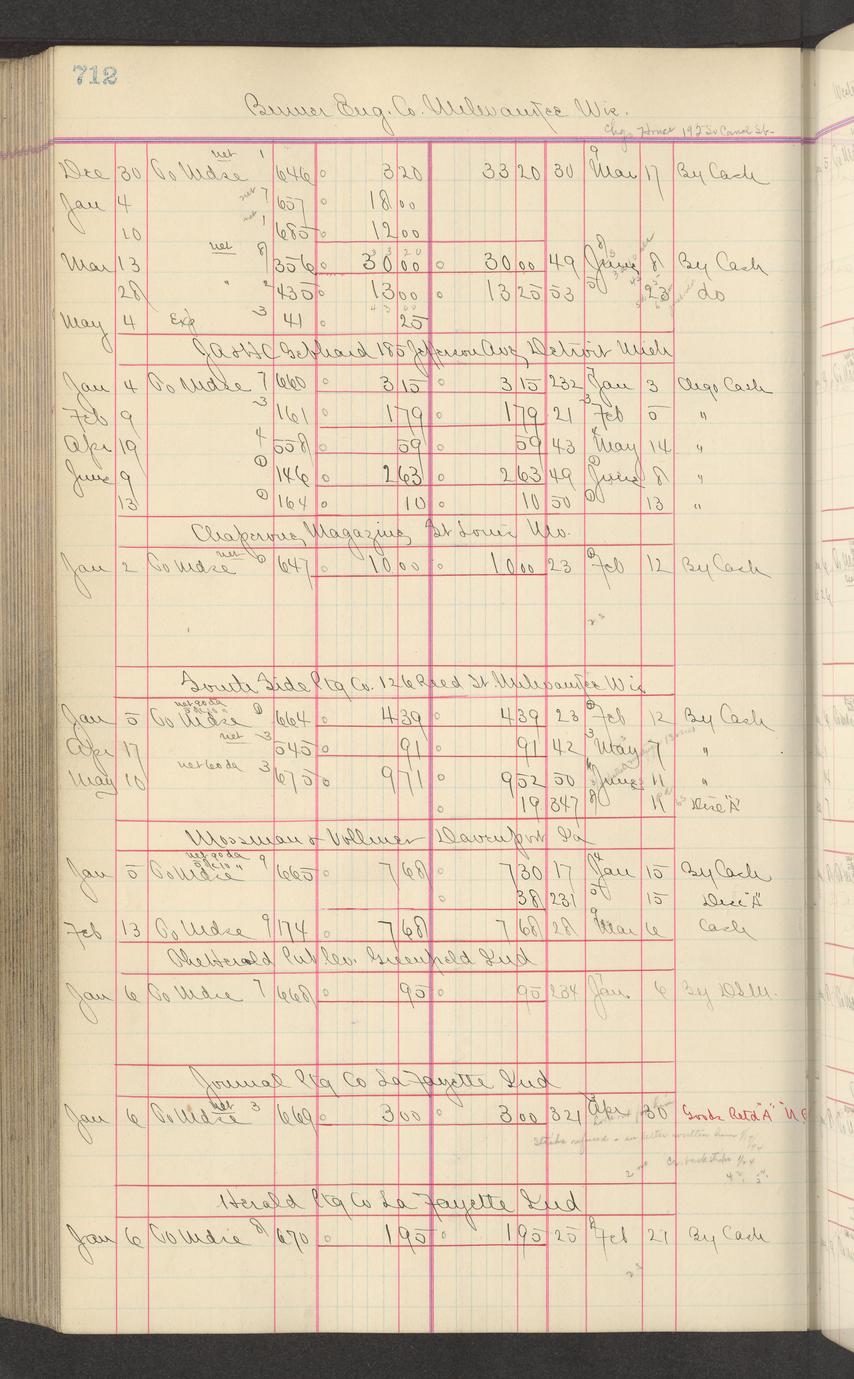 712
Binner Eng. Co. Milwaukee Wis.
Chgo House 195 So Canal St.
Dec 30 To Mdse net 1 646 0 3 20 33 20 30 9 Mar 17 By Cash
Jan 4 net 7 657 0 18 00
10 net 1 685 0 12 00
Mar 13 net 8 356 0 30 00 0 30 00 49 8 June 8 By Cash
28 " 2 435 0 13 00 0 13 25 53 5 23 do
May 4 Exp 3 41 0 25
Gebhard 185 Jefferson Ave, Detroit Mich
Jan 4 To Mdse 7 660 0 3 15 0 3 15 232 7 Jan 3 Chgo Cash
Feb 9 3 161 0 1 79 0 1 79 21 3 Feb 5 "
Apr 19 4 558 0 59 0 59 43 4 May 14 "
June 9 146 0 2 63 0 2 63 49 June 8 "
13 164 0 10 0 10 50 13 "
Chaperone Magazine, St Louis Mo.
Jan 2 To Mdse net 647 0 10 00 0 10 00 23 Feb 12 By Cash
South Side Ptg Co. 126 Reed St. Milwaukee Wis
net 60 da
Jan 5 To Mdse 664 0 4 39 0 4 39 23 Feb 12 By Cash
Apr 17 net 3 545 0 91 0 91 42 3 May 7 "
May 10 net 60 da 3 675 0 9 71 0 9 52 50 June 11 "
0 19 347 8 19 Disc "A"
Mossman & Vollmer Davenport Ia
net 60 da
Jan 5 To Mdse 9 665 0 7 68 0 7 30 17 4 Jan 15 By Cash
0 38 231 5 15 Disc "A"
Feb 13 To Mdse 9 174 0 7 68 0 7 68 28 9 Mar 6 Cash
The Herald Pub Co. Greenfield Ind
Jan 6 To Mdse 7 668 0 95 0 95 234 7 Jan 6 By D.S.M.
Journal Ptg Co La Fayette Ind
Jan 6 To Mdse net 3 669 0 3 00 0 3 00 321 3 Apr 30 Goods Retd "A"
Herald Ptg Co La Fayette Ind
Jan 6 To Mdse 8 670 0 1 95 0 1 95 25 Feb 21 By Cash